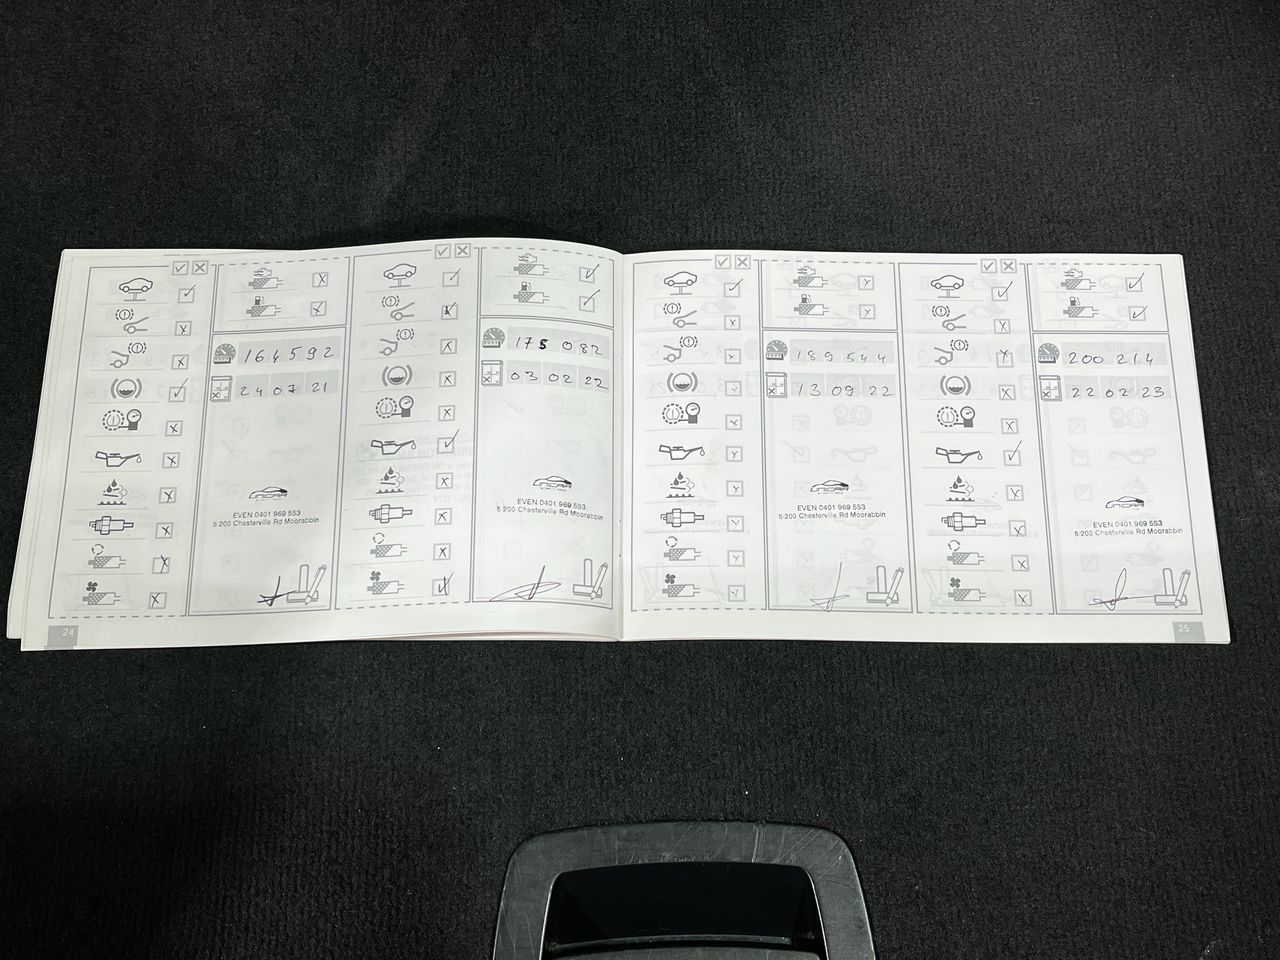 164592
24 07 21
LINCAR
EVEN 0401 969 553
5/200 Chesterville Rd Moorabbin
24
175 082
03 02 22
LINCAR
EVEN 0401 969 553
5/200 Chesterville Rd Moorabbin
189544
13 09 22
LINCAR
EVEN 0401 969 553
5/200 Chesterville Rd Moorabbin
200 214
22 02 23
LINCAR
EVEN 0401 969 553
5/200 Chesterville Rd Moorabbin
25